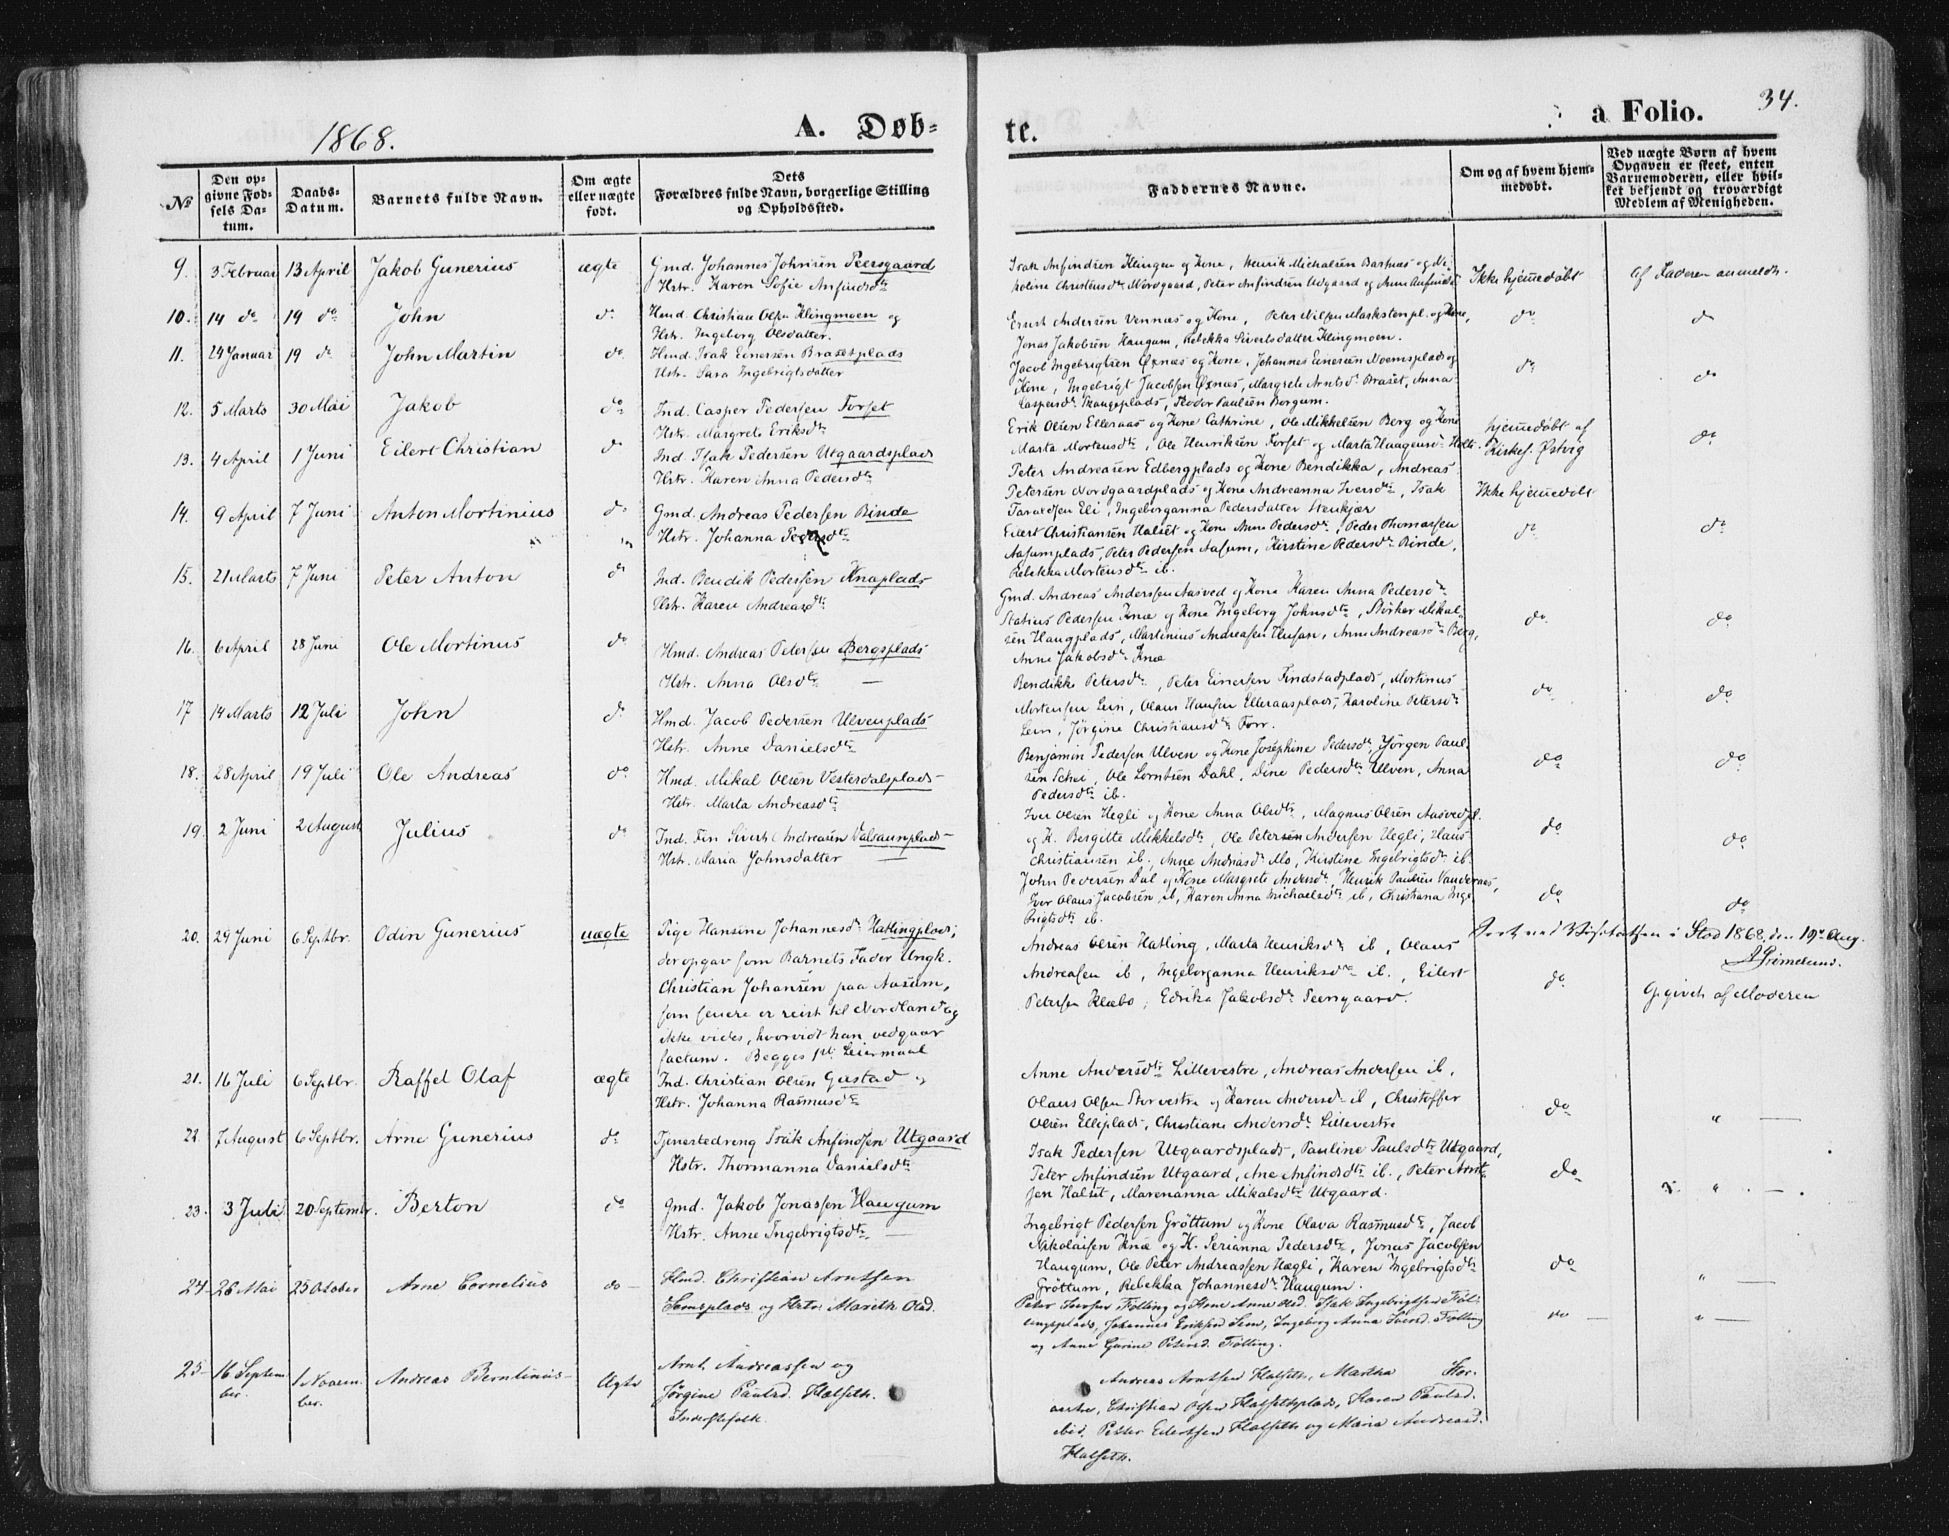 34.
1868.
A. Døb=
te.
a Folio.
№
Den op-
givne Fød-
sels Da-
tum.
Daabs-
Datum.
Barnets fulde Navn.
Om ægte
eller uægte
født.
Dets
Forældres fulde Navn, borgerlige Stilling
og Opholdssted.
Faddernes Navne.
Om og af hvem hjem-
medøbt.
Ved uægte Børn af hvem
Opgaven er skeet, enten
Barnemoderen, eller hvil-
ket bekjendt og troværdigt
Medlem af Menigheden.
9. 3 Februar 13 April Jakob Gunerius ægte Gmd. Johannes Johnsen Peersgaard
Hstr. Karen Sofie Anfindsdtr
Isak Anfindsen Klingen og Kone, Henrik Michalsen Barhnæs og Ni-
koline Christensdtr Nordgaard, Peter Anfindsen Udgaard og Anne Anfindsdtr
Ikke hjemmedøbt
Af Faderen anmeldt.
10. 14 do 19 do John do Hmd. Christian Olsen Klingmoen og
Hstr. Ingeborg Olsdatter.
Ernst Andersen Vennæs og Kone, Peter Nilsen Markstenpl. og Kone,
Jonas Jakobsen Haugum, Rebekka Sivertsdatter Klingmoen.
do do
11. 24 Januar 19 do John Martin do Hmd. Isak Einersen Brasetplads
Hstr. Sara Ingebrigtsdatter
Jacob Ingebrigtsen Øxnæs og Kone, Johannes Einersen Noemsplads og
Kone, Ingebrigt Jacobsen Øxnæs, Margrete Arntsdr Braset, Anna
Caspersdr Trangsplads, Theodor Paulsen Borgum.
do do
12. 5 Marts 30 Mai Jakob do Ind. Casper Pedersen Forset
Hstr. Margrete Eriksdtr
Erik Olsen Elleraas og Kone Cathrine, Ole Mikkelsen Berg og Kone
Marta Mortensdtr, Ole Henriksen Forset og Marta Haagensdr Holte.
hjemmedøbt af
Kirkes. Østvig
do
13. 4 April 1 Juni Eilert Christian do Ind. Isak Pedersen Utgaardsplads
Hstr. Karen Anna Pedersdtr
Peter Andreasen Edbergplads og Kone Bendikka, Andreas
Petersen Nordgaardplads og Kone Andreanna Iversdtr, Isak
Taraldsen Eli, Ingeborganna Pedersdatter Stenkjær
Ikke hjemmedøbt
14. 9 April 7 Juni Anton Mortinius do Gmd. Andreas Pedersen Binde
Hstr. Johanna Pedersdtr
Eilert Christiansen Halset og Kone Anne Pedersdr, Peder Thomassen
Aasumplads, Peter Pedersen Aasum, Kirstine Pedersdr Binde,
Rebekka Mortensdtr ib.
do do
15. 21 Marts 7 Juni Peter Anton do Ind. Bendik Pedersen Knaplads
Hstr. Karen Andreasdtr
Gmd. Andreas Andersen Aasved og Kone Karen Anna Pedersdr
Statius Pedersen Knæ og Kone Ingeborg Johnsdtr, Størker Mikal-
sen Haugplads, Martinius Andreasen Husan, Anne Andreasdr Berg,
Anne Jakobsdr Knæ
do do
16. 6 April 28 Juni Ole Mortinus do Hmd. Andreas Petersen Bergsplads
Hstr. Anna Olsdtr —
Bendikke Petersdtr, Peter Einersen Findstadplads, Mortinus
Mortensen Lein, Olaus Hansen Elleraasplads, Karoline Petersdtr
Lein, Jørgine Christiansdtr Forr.
do do
17 14 Marts 12 Juli John do Hmd. Jacob Pedersen Ulvenplads
Hstr. Anne Danielsdtr
Benjamin Pedersen Ulven og Kone Josephine Pedersdtr, Jørgen Paul-
sen Schei, Ole Lorntsen Dahl, Dine Pedersdtr Ulven, Anna
Pedersdtr ib.
do do
18. 28 April 19 Juli Ole Andreas do Hmd. Mikal Olsen Vesterdalsplads
Hstr. Marta Andreasdtr
Iver Olsen Hegli og Kone Anna Olsdtr, Magnus Olsen Aasvedpl.
og K. Bergitte Mikkelsdtr, Ole Petersen Andersen Hegli, Haus
Christiansen ib. Anne Andreasdr Mo, Kirstine Ingebrigtsdtr ib.
do do
19. 2 Juni 2 August Julius do Ind. Fin Sivert Andreasen Valsaunplads
Hstr. Maria Johnsdatter
John Pedersen Dal og Kone Margrete Andersdtr, Henrik Paulsen Vandernæs,
Iver Olaus Jacobsen ib, Karen Anna Michaelsdtr ib, Christiana Inge-
brigtsdtr ib.
do do
20. 29 Juni 6 Septbr. Odin Gunerius uægte Pige Hansine Johannesdr Hatlingplads;
der opgav som Barnets Fader Ungk.
Christian Johansen paa Aasum,
som senere er reist til Nordland og
ikke vides, hvorvidt han vedgaar
factum. Begges 1ste Leiermaal
Andreas Olsen Hatling, Marta Henriksdtr ib, Olaus
Andreasen ib, Ingeborganna Henriksdtr ib., Eilert
Petersen Klæbo, Edrika Jakobsdr Peersgaard.
do
Opgivet af Moderen
i Stod 1868, den 19de Aug.
21. 16 Juli 6 Septbr. Raffel Olaf ægte Ind. Christian Olsen Gustad og
Hstr. Johanna Rasmusdtr
Anne Andersdtr Lillevestre, Andreas Andersen ib,
Olaus Olsen Storvestre og Karen Andersdr ib, Christoffer
Olsen Elliplads, Christiane Andersdr Lillevestre
do " —
22 7 August 6 Septbr. Arne Gunerius do Tjenestedreng Isak Anfindsen Utgaard
Hstr. Thormanna Danielsdtr
Isak Pedersen Utgaardsplads, Pauline Paulsdtr Utgaard,
Peter Anfindsen Utgaard, Ane Anfindsdtr ib., Peter Arnt-
sen Halset, Marenanna Mikalsdtr Utgaard.
do " —
23. 3 Juli 20 Septembr. Berton do Gmd. Jakob Jonassen Haugum
Hstr. Anne Ingebrigtsdtr —
Ingebrigt Pedersen Grøttum og Kone Olava Rasmusdtr, Jacob
Nikolaisen Knæ og K. Serianna Pedersdtr, Jonas Jacobsen
Haugum, Ole Peter Andreassen Hægli, Karen Ingebrigtsdtr
Grøttum, Rebekka Johannesdr Haugum.
do " —
24 26 Mai 25 October Arne Cornelius do Hmd. Christian Arntsen
Semsplads og Hstr. Marith Olsd.
Peter Iversen Følling og Kone Anne Olsd. Isak Ingebrigtsen Føl-
lingsplads, Johannes Eriksen Sem, Ingeborg Anna Iversd. Følling
og Anne Gurine Petersd. Følling.
do — " —
25 16 Septem-
ber. 1 Novem-
ber. Andreas Berntinus Ægte Arnt Andreassen og
Jørgine Paulsd. Halseth.
Inderstefolk.
Andreas Arntsen Halseth, Martha Stor-
vestre, Christian Olsen Halsetsplads, Karen Paulsd.
ibid. Petter Eilertsen Halseth og Maria Andreasd.
Halseth.